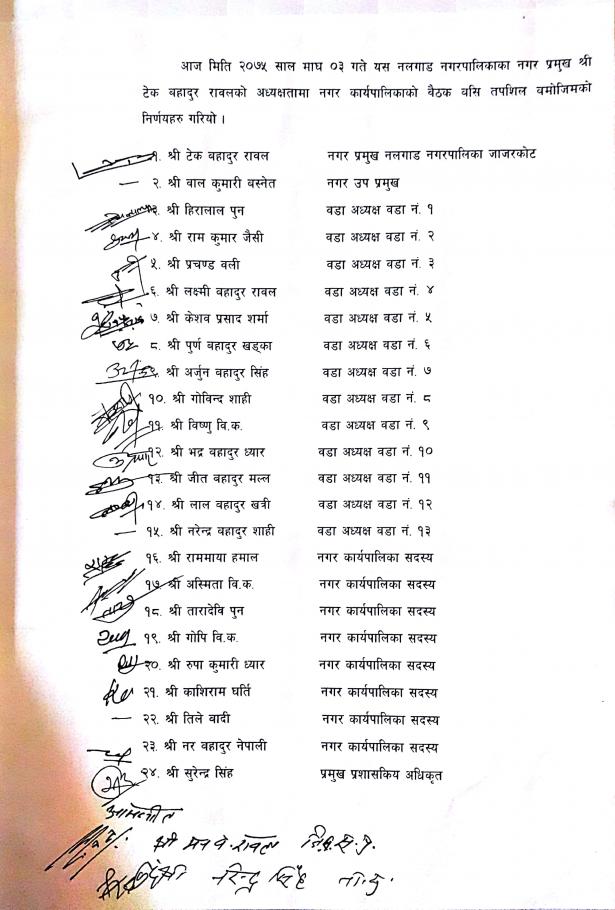 आज मिति २०७५ साल माघ ०३ गते यस नलगाड नगरपालिकाका नगर प्रमुख श्री
टेक बहादुर रावलको अध्यक्षतामा नगर कार्यपालिकाको बैठक बसि तपशिल बमोजिमको
निर्णयहरु गरियो ।
१. श्री टेक बहादुर रावल नगर प्रमुख नलगाड नगरपालिका जाजरकोट
२. श्री बाल कुमारी बस्नेत नगर उप प्रमुख
३. श्री हिरालाल पुन वडा अध्यक्ष वडा नं. १
४. श्री राम कुमार जैसी वडा अध्यक्ष वडा नं. २
५. श्री प्रचण्ड वली वडा अध्यक्ष वडा नं. ३
६. श्री लक्ष्मी बहादुर रावल वडा अध्यक्ष वडा नं. ४
७. श्री केशव प्रसाद शर्मा वडा अध्यक्ष वडा नं. ५
८. श्री पुर्ण बहादुर खड्का वडा अध्यक्ष वडा नं. ६
९. श्री अर्जुन बहादुर सिंह वडा अध्यक्ष वडा नं. ७
१०. श्री गोविन्द शाही वडा अध्यक्ष वडा नं. ८
११. श्री विष्णु वि.क. वडा अध्यक्ष वडा नं. ९
१२. श्री भद्र बहादुर ध्यार वडा अध्यक्ष वडा नं. १०
१३. श्री जीत बहादुर मल्ल वडा अध्यक्ष वडा नं. ११
१४. श्री लाल बहादुर खत्री वडा अध्यक्ष वडा नं. १२
१५. श्री नरेन्द्र बहादुर शाही वडा अध्यक्ष वडा नं. १३
१६. श्री राममाया हमाल नगर कार्यपालिका सदस्य
१७. श्री अस्मिता वि.क. नगर कार्यपालिका सदस्य
१८. श्री तारादेवि पुन नगर कार्यपालिका सदस्य
१९. श्री गोपि वि.क. नगर कार्यपालिका सदस्य
२०. श्री रुपा कुमारी ध्यार नगर कार्यपालिका सदस्य
२१. श्री काशिराम घर्ति नगर कार्यपालिका सदस्य
२२. श्री तिले वादी नगर कार्यपालिका सदस्य
२३. श्री नर बहादुर नेपाली नगर कार्यपालिका सदस्य
२४. श्री सुरेन्द्र सिंह प्रमुख प्रशासकिय अधिकृत
श्री
नरेन्द्र सिंह